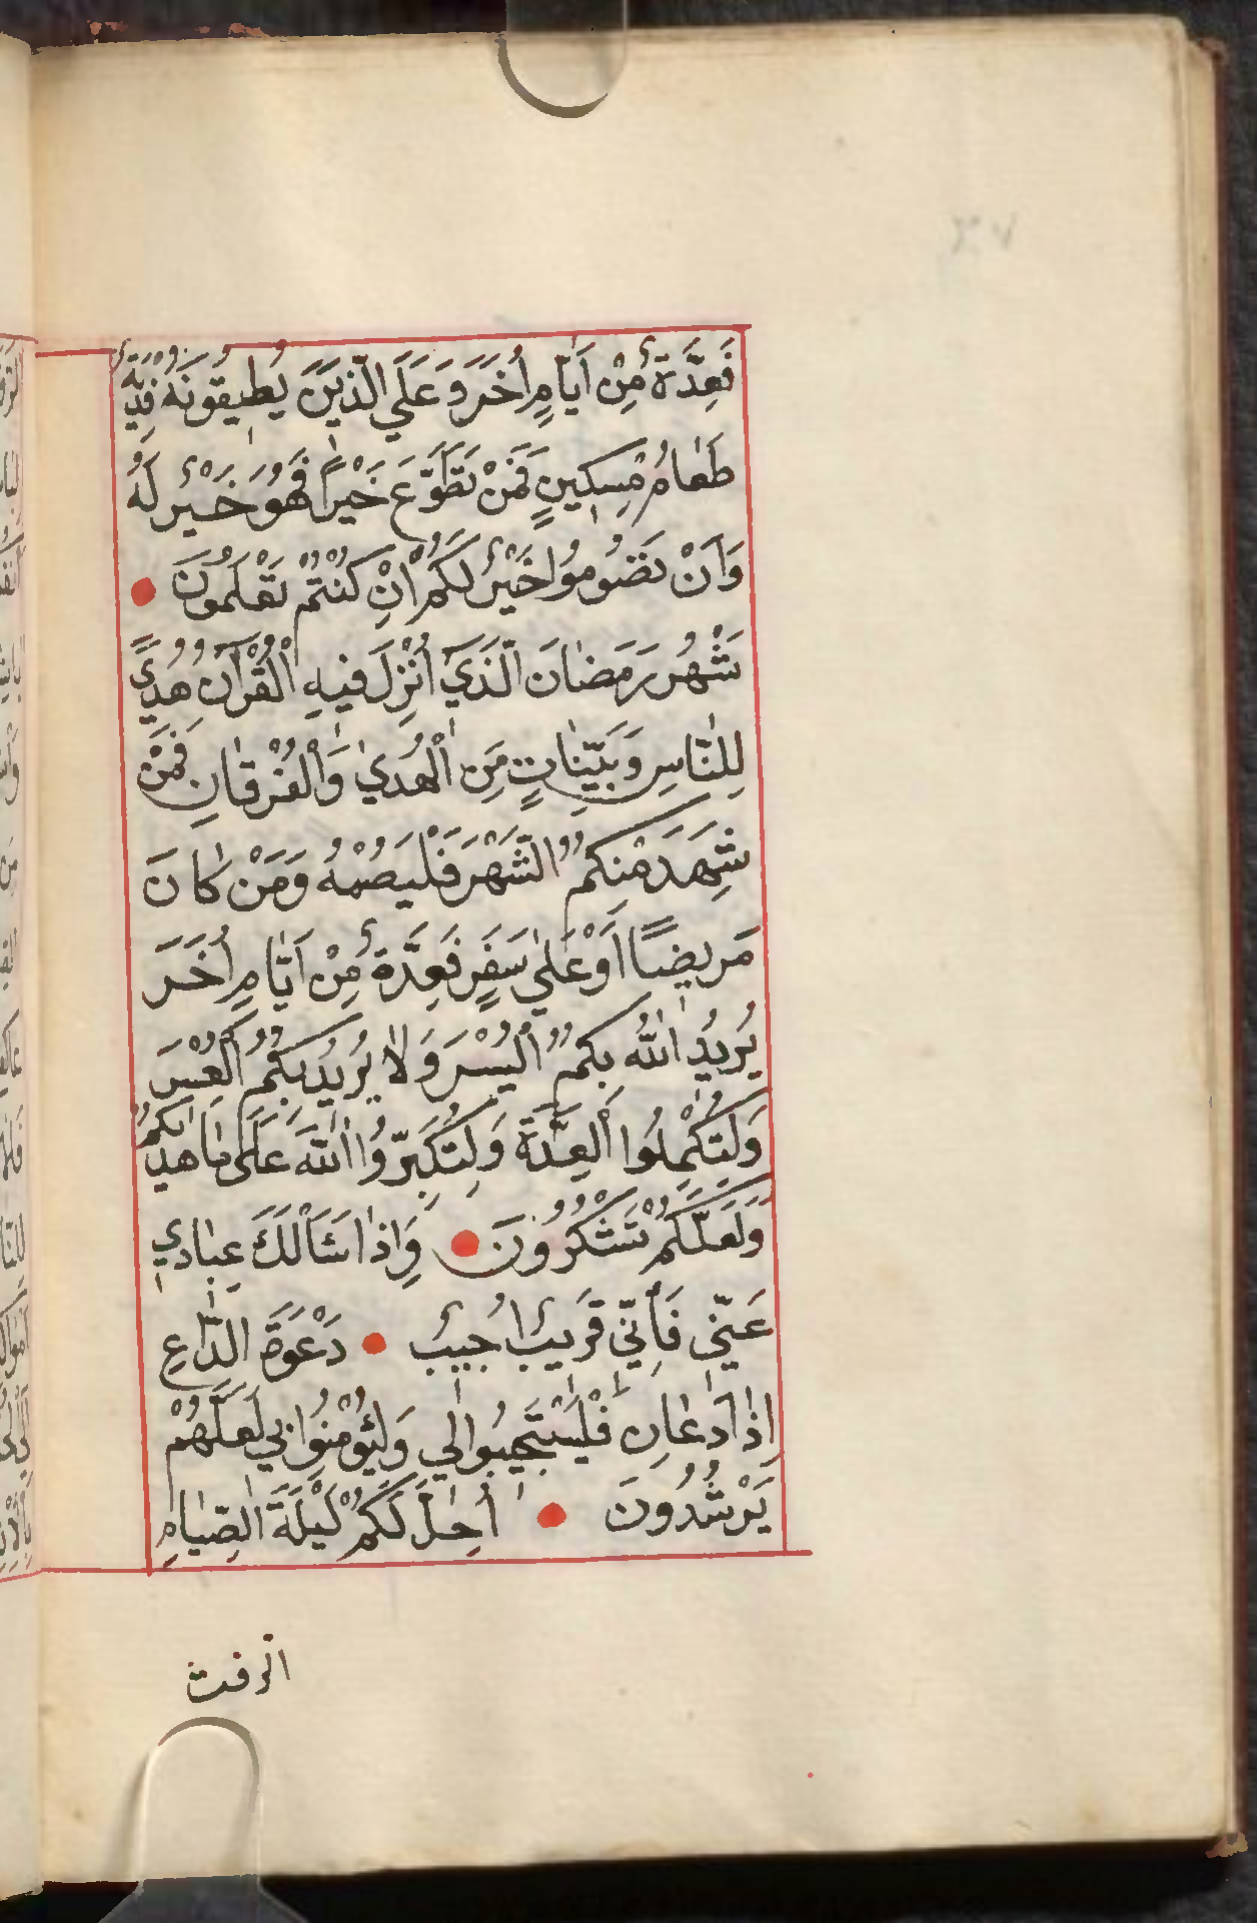 فَعِدَّةٌ مِنْ اَيَّامٍ اُخَرَ وَعَلَي الَّذِينَ يُطِيقُونَهُ فِدْيَةٌ
طَعَامُ مِسْكِينٍ فَمَنْ تَطَوَّعَ خَيْراً فَهُوَ خَيْرٌ لَهُ
وَاَنْ تَصُومُوا خَيْرٌ لَكُمْ اِنْ كُنْتُمْ تَعْلَمُونَ
شَهْرُ رَمَضَانَ الَّذِي اُنْزِلَ فِيهِ الْقُرْآنُ هُديً
لِلنَّاسِ وَبَيِّنَاتٍ مِنَ الْهُديٰ وَالْفُرْقَانِ فَمَنْ
شَهِدَ مِنْكُمُ الشَّهْرَ فَلْيَصُمْهُ وَمَنْ كَانَ
مَرِيضًا اَوْ عَلٰي سَفَرٍ فَعِدَّةٌ مِنْ اَيَّامٍ اُخَرَ
يُرِيدُ اللّٰهُ بِكُمُ الْيُسْرَ وَلَا يُرِيدُ بِكُمُ الْعُسْرَ
وَلِتُكْمِلُوا الْعِدَّةَ وَلِتُكَبِّرُوا اللّٰهَ عَلَى مَا هَديٰكُمْ
وَلَعَلَّكُمْ تَشْكُرُونَ وَاِذَا سَأَلَكَ عِبَادِي
عَنِّي فَاِنِّي قَرِيبٌ اُجِيبُ دَعْوَةَ الدَّاعِ
اِذَا دَعَانِ فَلْيَسْتَجِيبُوا لِي وَلْيُؤْمِنُوا بِي لَعَلَّهُمْ
يَرْشُدُونَ اُحِلَّ لَكُمْ لَيْلَةَ الصِّيَامِ
الرفث